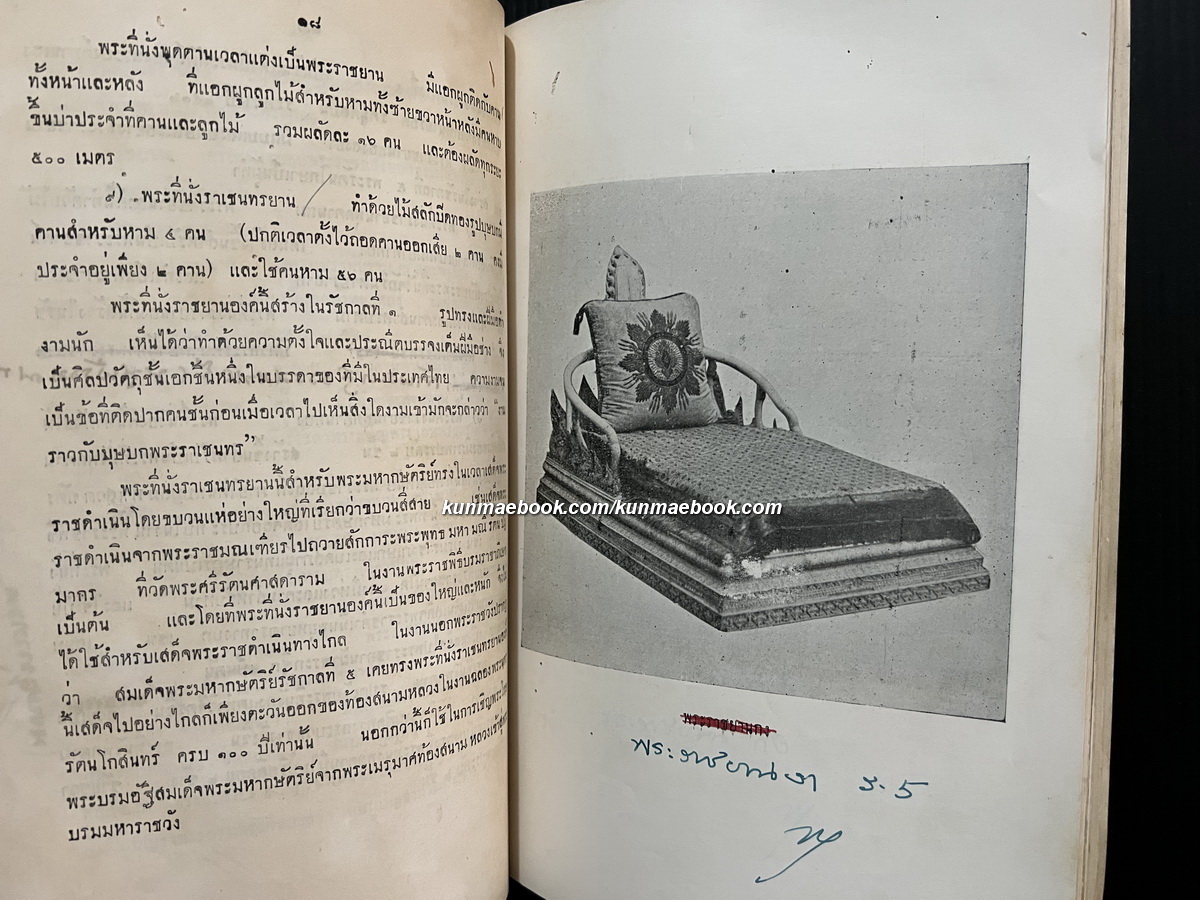 ๑๘
พระที่นั่งพุดตานเวลาแต่งเป็นพระราชยาน มีแอกผูกติดกับคาน
ทั้งหน้าและหลัง ที่แอกผูกลูกไม้สำหรับหามทั้งซ้ายขวาหน้าหลังมีคนหาม
ขึ้นบ่าประจำที่คานและลูกไม้ รวมผลัดละ ๑๖ คน และต้องผลัดทุกระยะ
๕๐๐ เมตร
๙) พระที่นั่งราเชนทรยาน ทำด้วยไม้สลักปิดทองรูปบุษบกมี
คานสำหรับหาม ๔ คน (ปกติเวลาตั้งไว้ถอดคานออกเสีย ๒ คาน คงมี
ประจำอยู่เพียง ๒ คาน) และใช้คนหาม ๕๖ คน
พระที่นั่งราชยานองค์นี้สร้างในรัชกาลที่ ๑ รูปทรงและฝีมือทำ
งามนัก เห็นได้ว่าทำด้วยความตั้งใจและประณีตบรรจงเต็มฝีมือช่าง จึง
เป็นศิลปวัตถุชั้นเอกชิ้นหนึ่งในบรรดาของที่มีในประเทศไทย ความงามจน
เป็นข้อที่ติดปากคนชั้นก่อนเมื่อเวลาไปเห็นสิ่งใดงามเข้ามักจะกล่าวว่า "งาม
ราวกับบุษบกพระราเชนทร"
พระที่นั่งราเชนทรยานนี้สำหรับพระมหากษัตริย์ทรงในเวลาเสด็จพระ
ราชดำเนินโดยขบวนแห่อย่างใหญ่ที่เรียกว่าขบวนสี่สาย เช่นเสด็จพระ
ราชดำเนินจากพระราชมณเฑียรไปถวายสักการะพระพุทธ มหา มณี รัตน ปฏิ
มากร ที่วัดพระศรีรัตนศาสดาราม ในงานพระราชพิธีบรมราชาภิเษก
เป็นต้น และโดยที่พระที่นั่งราชยานองค์นี้เป็นของใหญ่และหนัก จึงไม่
ได้ใช้สำหรับเสด็จพระราชดำเนินทางไกล ในงานนอกพระราชวังปรากฏ
ว่า สมเด็จพระมหากษัตริย์รัชกาลที่ ๕ เคยทรงพระที่นั่งราเชนทรยานองค์
นี้เสด็จไปอย่างไกลก็เพียงตะวันออกของท้องสนามหลวงในงานฉลองพระนคร
รัตนโกสินทร์ ครบ ๑๐๐ ปีเท่านั้น นอกกว่านี้ก็ใช้ในการเชิญพระโกศ
พระบรมอัฐิสมเด็จพระมหากษัตริย์จากพระเมรุมาศท้องสนาม หลวงเข้าสู่พระ
บรมมหาราชวัง
kunmaebook.com/kunmaebook.com
พระราชยานกง
พระราชยานงา ร.5